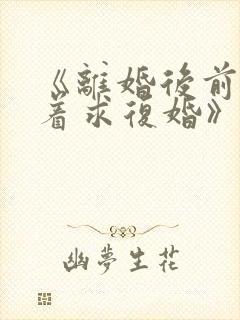 《離婚後前
着求復婚》
幽夢生花